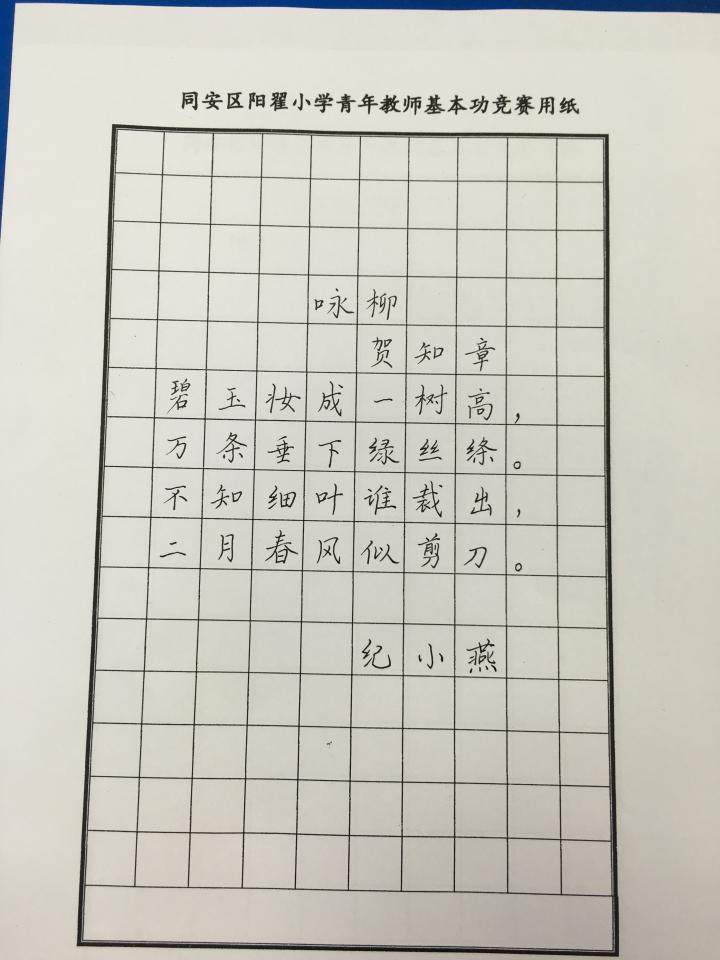 同安区阳翟小学青年教师基本功竞赛用纸
咏柳
贺知章
碧玉妆成一树高，
万条垂下绿丝绦。
不知细叶谁裁出，
二月春风似剪刀。
纪小燕